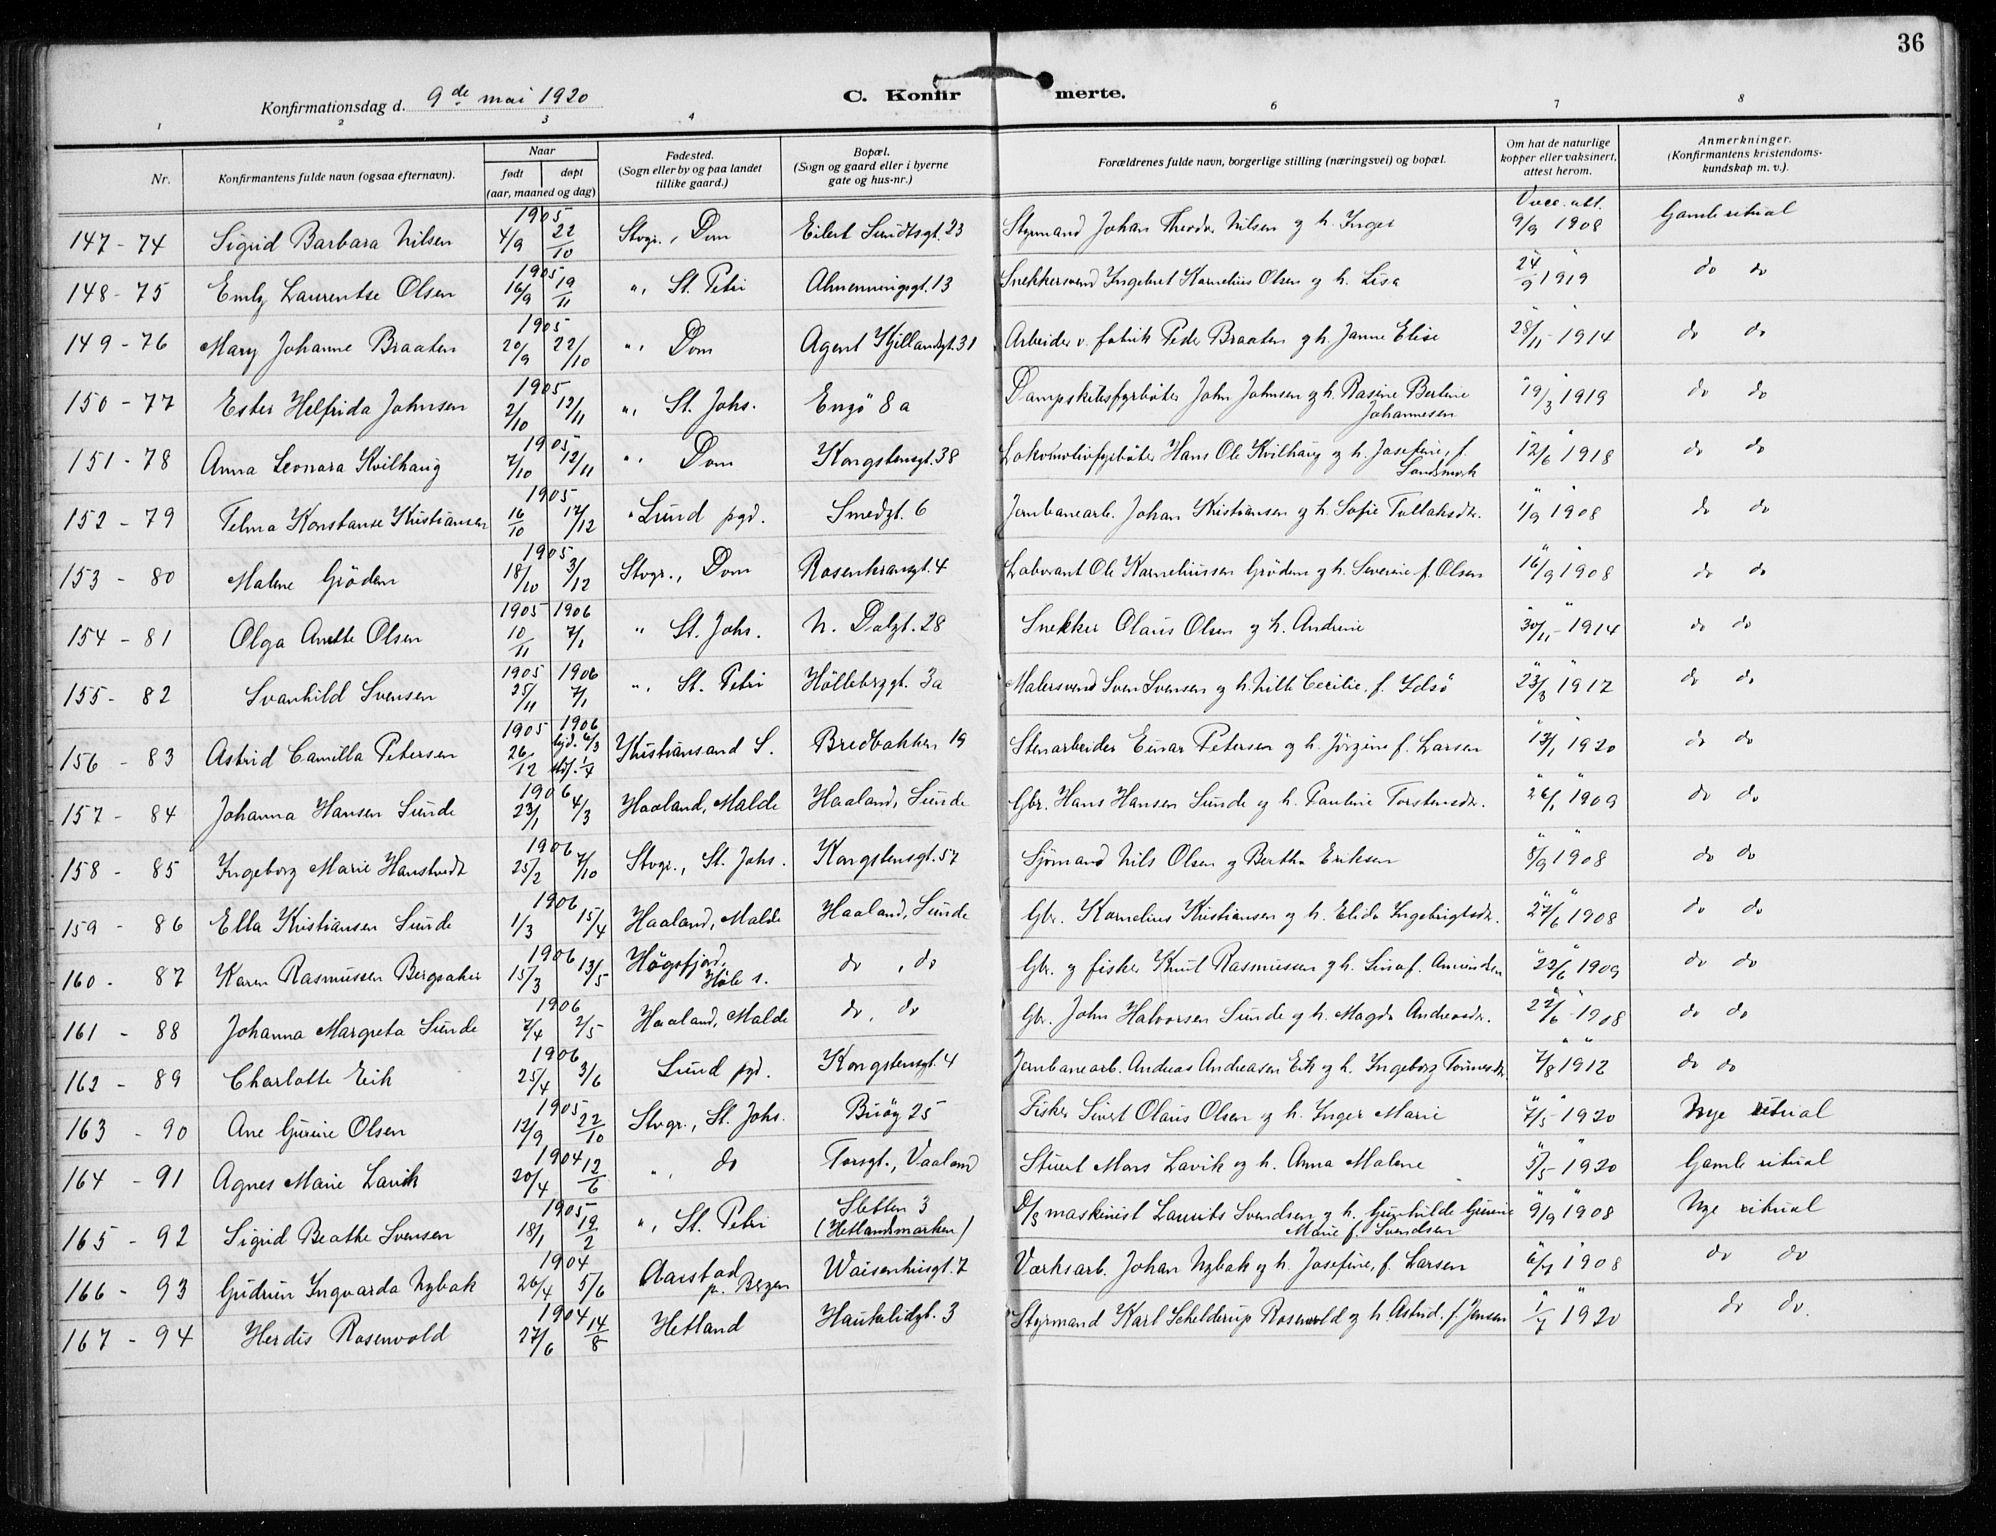 36
Konfirmationsdag d. 9de mai 1920
C. Konfir merte.
1 2 3 4 6 7 8
Nr. Konfirmantens fulde navn (ogsaa efternavn). Naar født døpt (aar, maaned og dag) Fødested. (Sogn eller by og paa landet tillike gaard.) Bopæl. (Sogn og gaard eller i byerne gate og hus-nr.) Forældrenes fulde navn, borgerlige stilling (næringsvei) og bopæl. Om hat de naturlige kopper eller vaksinert, attest herom. Anmerkninger. (Konfirmantens kristendoms-kundskap m. v.).
147 - 74 Sigrid Barbara Nilsen 1905 4/9 22/10 Stvgr., Dom Eilert Sundtsgt. 23 Styrmand Johan Theodor Nilsen og h. Inger Vacc. att. 9/9 1908 Gamle ritual
148 - 75 Emly Laurentse Olsen 1905 16/9 19/11 " St. Petri Almenningsgt. 13 Snekkersvend Ingebret Kornelius Olsen og h. Lisa 24/9 1919 do do
149 - 76 Mary Johanne Braaten 1905 20/9 22/10 " Dom Agent Kjellandsgt. 31 Arbeider v. fabrik Peder Braaten og h. Janne Elise 28/11 - 1914 do do
150 - 77 Ester Helfrida Johnsen 1905 2/10 12/11 " St. Johs. Engö 8 a Dampskibsfyrböter John Johnsen og h. Rasine Bertine Johannesen 19/3 1919 do do
151 - 78 Anna Leonora Kvilhaug 1905 7/10 12/11 " Dom Kongstensgt. 38 Lokomotivfyrböter Hans Ole Kvilhaug og h. Josefine, f. Landsmark 12/6 1918 do do
152 - 79 Telma Konstanse Kristiansen 1905 16/10 17/12 " Lund pgd. Smedgt. 6 Jernbanearb. Johan Kristiansen og h. Sofie Tollaksdr. 1/9 1908 do do
153 - 80 Malene Gröden 1905 18/10 3/12 Stvgr., Dom Rosenkransgt. 4 Laborant Ole Korneliussen Gröden og h. Severine f. Olsen 16/9 1908 do do
154 - 81 Olga Anette Olsen 1905 10/11 1906 7/1 " St. Johs. N. Dalgt. 28 Snekker Olaus Olsen og h. Andrine 30/11 - 1914 do do
155 - 82 Svanhild Svensen 1905 25/11 1906 7/1 " St. Petri Höllebrygt. 3a Malersvend Sven Svensen og h. Nille Cecilie, f. Idsö 23/3 1917 do do
156 - 83 Astrid Camilla Petersen 1905 26/12 1906 hjd. 6/3 stdf. 1/4 Kristiansand S. Bredbakken 19 Stenarbeider Einar Petersen og h. Jörgine f. Larsen 13/1 1920 do do
157 - 84 Johanna Hansen Sunde 1906 23/1 4/3 Haaland, Malde Haaland, Sunde Gbr. Hans Hansen Sunde og h. Pauline Torstensdr. 26/1 1909 do do
158 - 85 Ingeborg Marie Hanstvedt 1906 25/2 7/10 Stvgr., St. Johs. Kongstensgt. 57 Sjömand Nils Olsen og Bertha Eriksen 8/9 1908 do do
159 - 86 Ella Kristiansen Sunde 1906 1/3 15/4 Haaland, Malde Haaland, Sunde Gbr. Kornelius Kristiansen og h. Elida Ingebrigtsdr. 27/6 1908 do do
160 - 87 Karen Rasmussen Bergsaker 1906 15/3 13/5 Högsfjord, Höle s. do, do Gbr. og fisker Knut Rasmussen og h. Lina f. Amundsen 22/6 1909 do do
161 - 88 Johanna Margreta Sunde 1906 7/4 2/5 Haaland, Malde do, do Gbr. John Halvorsen Sunde og h. Magda Andreasdr. 27/6 - 1908 do do
162 - 89 Charlotte Eik 1906 25/4 3/6 Lund pgd. Kongstensgt. 4 Jernbanearb. Andreas Andreasen Eik og h. Ingeborg Tönnesdr. 7/8 1912 do do
163 - 90 Ane Gurine Olsen 1905 12/9 22/10 Stvgr., St. Johs. Buöy 25 Fisker Sivert Olaus Olsen og h. Inger Marie 7/5 - 1920 Nye ritual
164 - 91 Agnes Marie Lavik 1904 20/4 12/6 " do Torsgt., Vaaland Stuert Mons Lavik og h. Anna Malene 5/5 - 1920 Gamle ritual
165 - 92 Sigrid Beathe Svensen 1905 18/1 19/2 " St. Petri Sletten 3 (Hetlandsmarken) D/S maskinist Laurits Svendsen og h. Gunhilde Gurine Marie f. Svendsen 9/9 1908 Nye ritual
166 - 93 Gudrun Ingvarda Nybak 1904 26/4 5/6 Aarstad p. Bergen Waisenhusgt. 7 Værksarb. Johan Nybak og h. Josefine, f. Larsen 6/7 1908 do do
167 - 94 Herdis Rosenvold 1904 27/6 14/8 Hetland Haukelidgt. 3 Styrmand Karl Schelderup Rosenvold og h. Astrid. f. Jensen 1/7 1920 do do.